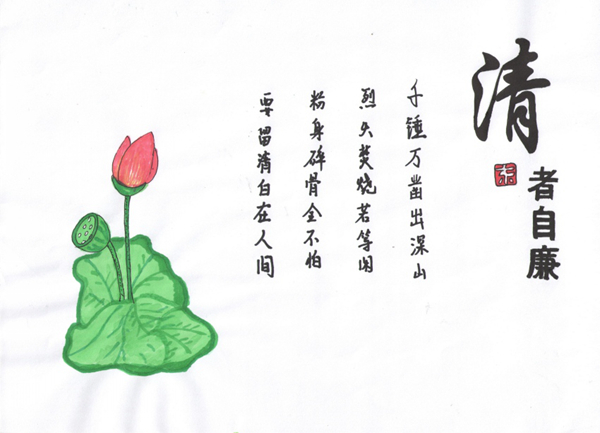 清者自廉
千锤万凿出深山
烈火焚烧若等闲
粉身碎骨全不怕
要留清白在人间